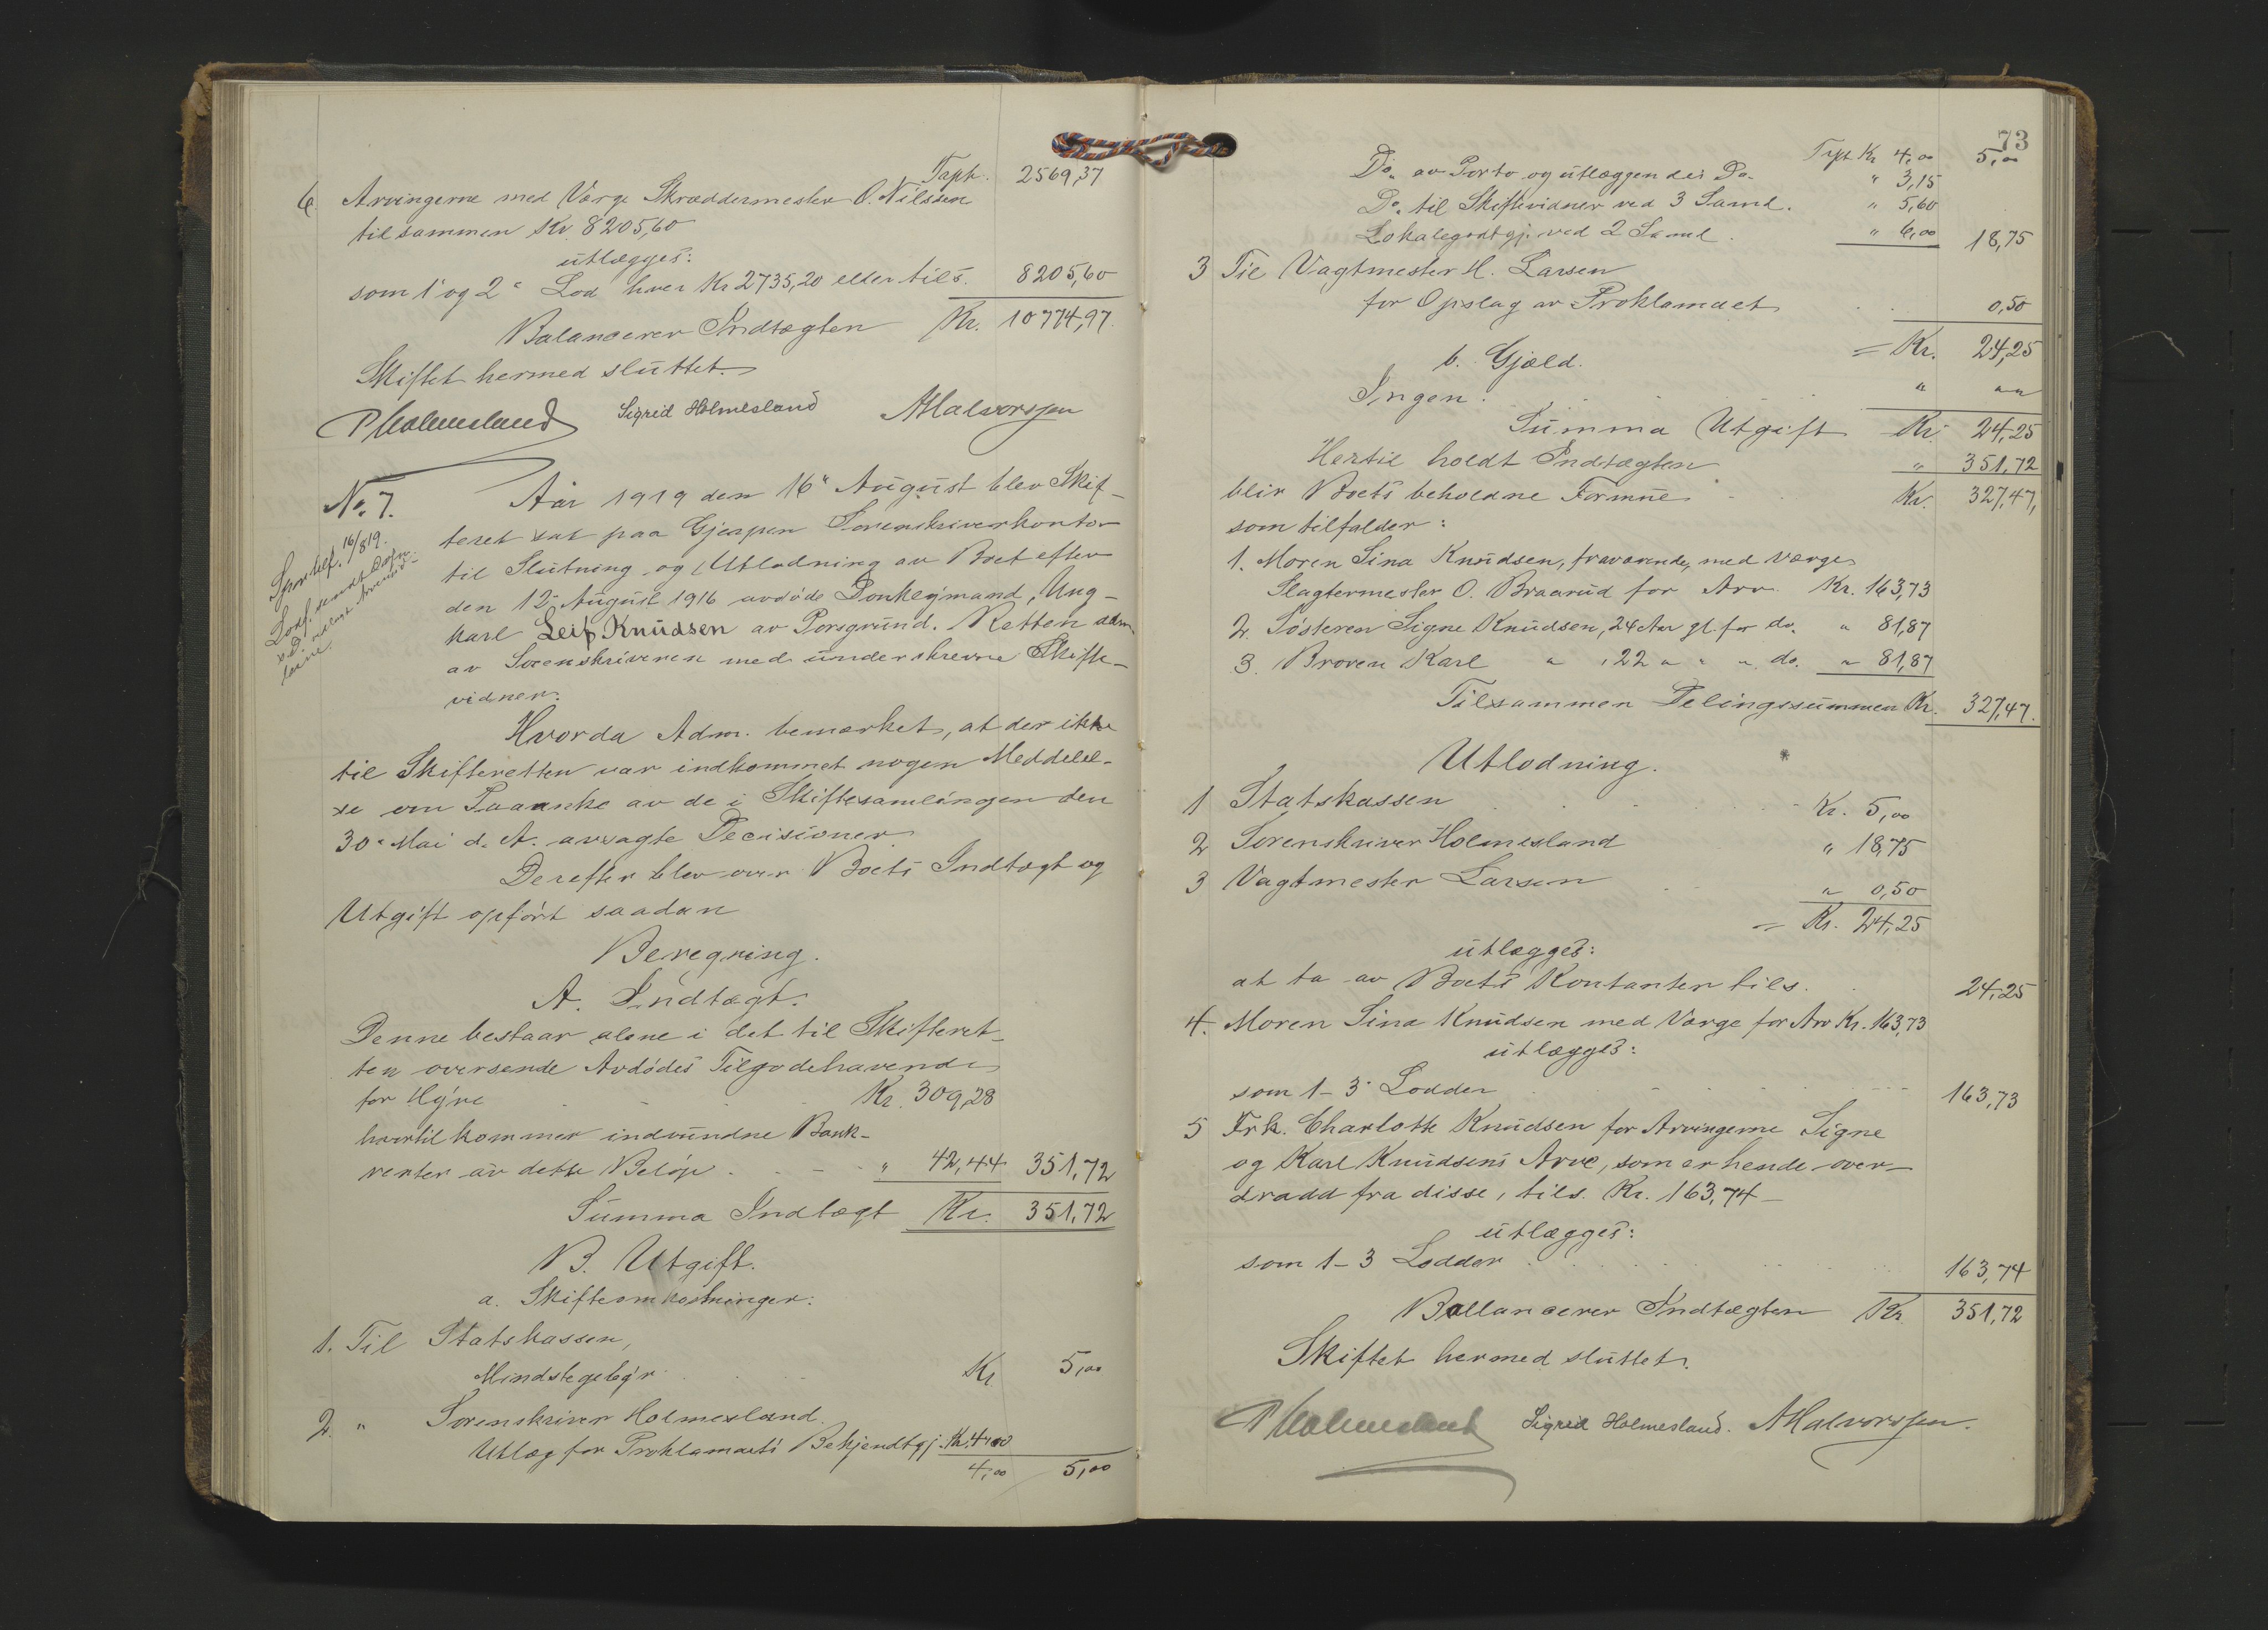 Trspt. 2569,37
6. Arvingerne med Værge Skræddermester O. Nilssen
tilsammen Kr. 8205,60
utlægges:
som 1' og 2' Lod hver Kr 2735,20 eller tils. 8205,60
Balancerer Indtægten Kr. 10774,97.
Skiftet hermed sluttet.
P Holmesland Sigrid Holmesland A Halvorssen
No. 7. Aar 1919 den 16' August blev Skif-
teret sat paa Gjerpen Sorenskriverkontor
til Slutning og Utlodning av Boet efter
den 12' August 1916 avdøde Donkeymand, Ung-
karl Leif Knudsen av Porsgrund. Retten adm.
av Sorenskriveren med underskrevne Skifte-
vidner.
16/819.
Hvorda Adm. bemærket, at der ikke
til Skifteretten var indkommet nogen Meddelel-
se om Paaanke av de i Skiftesamlingen den
30' Mai d. A. avsagte Decisioner.
Derefter blev over Boets Indtægt og
Utgift opført saadan
Beregning.
A. Indtægt.
Denne bestaar alene i det til Skifteret-
ten oversende Avdødes Tilgodehavende
for Hyre Kr. 309,28
hvortil kommer indvundne Bank-
renter av dette Beløp " 42,44 351,72
Summa Indtægt Kr. 351,72
B. Utgift.
a. Skifteomkostninger:
1. Til Statskassen,
Mindstegebyr Kr 5,00
2. " Sorenskriver Holmesland.
Utlæg for Proklamaets Bekjendtgj. Kr. 4,00
4,00 5,00
73
Trspt Kr 4,00 5,00
Do. av Porto og utlæggendes Do. " 3,15
Do. til Skiftevidner ved 3 Saml. " 5,60
Lokalegodtgj. ved 2 Saml. " 6,00 18,75
3 Til Vagtmester H. Larsen
for Opslag av Proklamaet 0,50
= Kr. 24,25
b. Gjæld.
Ingen " ""
Summa Utgift Kr. 24,25
Hertil holdt Indtægten " 351,72
blir Boets beholdne Formue Kr. 327,47,
som tilfalder:
1. Moren Lina Knudsen, fraværende, med Værge
Slagtermester O. Braarud for Arv. Kr. 163,73
2. Søsteren Signe Knudsen, 24 Aar gl. for do. " 81,87
3. Broren Karl " , 22 " " " do. " 81,87
Tilsammen Delingssummen Kr. 327,47.
Utlodning.
1 Statskassen Kr. 5,00
2 Sorenskriver Holmesland " 18,75
3 Vagtmester Larsen " 0,50
= Kr. 24,25
utlægges:
at ta av Boets Kontanter tils. 24,25
4. Moren Lina Knudsen med Værge for Arv Kr. 163,73
utlægges:
som 1-3' Lodder 163,73
5 Frk. Charlotte Knudsen for Arvingerne Signe
og Karl Knudsens Arve, som er hende over-
dradd fra disse, tils. Kr. 163,74
utlægges:
som 1-3 Lodder 163,74
Ballancerer Indtægten Kr. 351,72
Skiftet hermed sluttet.
P Holmesland Sigrid Holmesland. A Halvorssen.